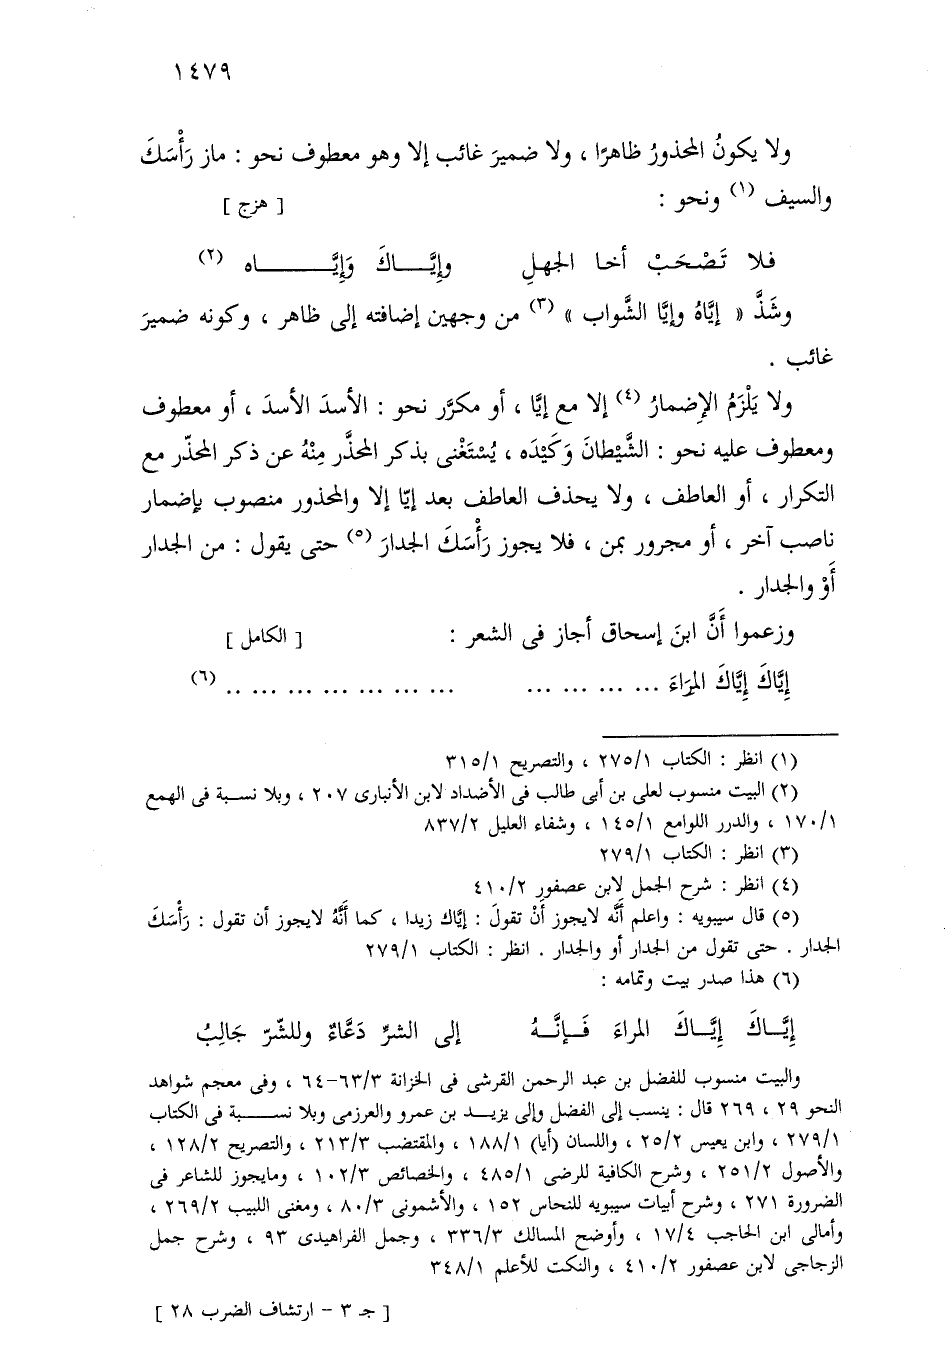 ١٤٧٩
ولا يكونُ المحذورُ ظاهرًا ، ولا ضميرَ غائب إلا وهو معطوف نحو : ماز رَأْسَكَ
والسيف (١) ونحو : [ هزج ]
فلا تَصْحَبْ أخا الجهلِ وإِيَّــاكَ وَإِيَّـــــــاه (٢)
وشَذَّ « إيَّاهُ وإيَّا الشَّواب » (٣) من وجهين إضافته إلى ظاهر ، وكونه ضميرَ
غائب .
ولا يَلْزَمُ الإِضمارُ (٤) إلا مع إيَّا ، أو مكرَّر نحو : الأسدَ الأسدَ ، أو معطوف
ومعطوف عليه نحو : الشَّيْطانَ وَكَيْدَه ، يُسْتَغْنى بذكر المحذَّر مِنْهُ عن ذكر المحذّر مع
التكرار ، أو العاطف ، ولا يحذف العاطف بعد إيّا إلا والمحذور منصوب بإضمار
ناصب آخر ، أو مجرور بمن ، فلا يجوز رَأْسَكَ الجدارَ (٥) حتى يقول : من الجدار
أَوْ والجدار .
وزعموا أَنَّ ابنَ إسحاق أجاز فى الشعر : [ الكامل ]
إيَّاكَ إيَّاكَ المرَاءَ ... ... ... ... ... ... ... ... ... ... .. (٦)
(١) انظر : الكتاب ٢٧٥/١ ، والتصريح ٣١٥/١
(٢) البيت منسوب لعلى بن أبى طالب فى الأضداد لابن الأنبارى ٢٠٧ ، وبلا نسبة فى الهمع
١٧٠/١ ، والدرر اللوامع ١٤٥/١ ، وشفاء العليل ٨٣٧/٢
(٣) انظر : الكتاب ٢٧٩/١
(٤) انظر : شرح الجمل لابن عصفور ٤١٠/٢
(٥) قال سيبويه : واعلم أَنَّه لايجوز أَنْ تقولَ : إيَّاك زيدا ، كما أَنَّهُ لايجوز أن تقول : رَأْسَكَ
الجدار . حتى تقول من الجدار أو والجدار . انظر : الكتاب ٢٧٩/١
(٦) هذا صدر بيت وتمامه :
إيَّــاكَ إيَّــاكَ المراءَ فَــإنَّــهُ إلى الشرِّ دَعَّاءٌ وللشّرّ جَالِبُ
والبيت منسوب للفضل بن عبد الرحمن القرشى فى الخزانة ٦٣/٣-٦٤ ، وفى معجم شواهد
النحو ٢٩ ، ٢٦٩ قال : ينسب إلى الفضل وإلى يزيــد بن عمرو والعرزمى وبلا نســــبة فى الكتاب
٢٧٩/١ ، وابن يعيس ٢٥/٢ ، واللسان (أيا) ١٨٨/١ ، والمقتضب ٢١٣/٣ ، والتصريح ١٢٨/٢ ،
والأصول ٢٥١/٢ ، وشرح الكافية للرضى ٤٨٥/١ ، والخصائص ١٠٢/٣ ، ومايجوز للشاعر فى
الضرورة ٢٧١ ، وشرح أبيات سيبويه للنحاس ١٥٢ ، والأشمونى ٨٠/٣ ، ومغنى اللبيب ٢٦٩/٢ ،
وأمالى ابن الحاجب ١٧/٤ ، وأوضح المسالك ٣٣٦/٣ ، وجمل الفراهيدى ٩٣ ، وشرح جمل
الزجاجى لابن عصفور ٤١٠/٢ ، والنكت للأعلم ٣٤٨/١
[ جـ ٣ - ارتشاف الضرب ٢٨ ]